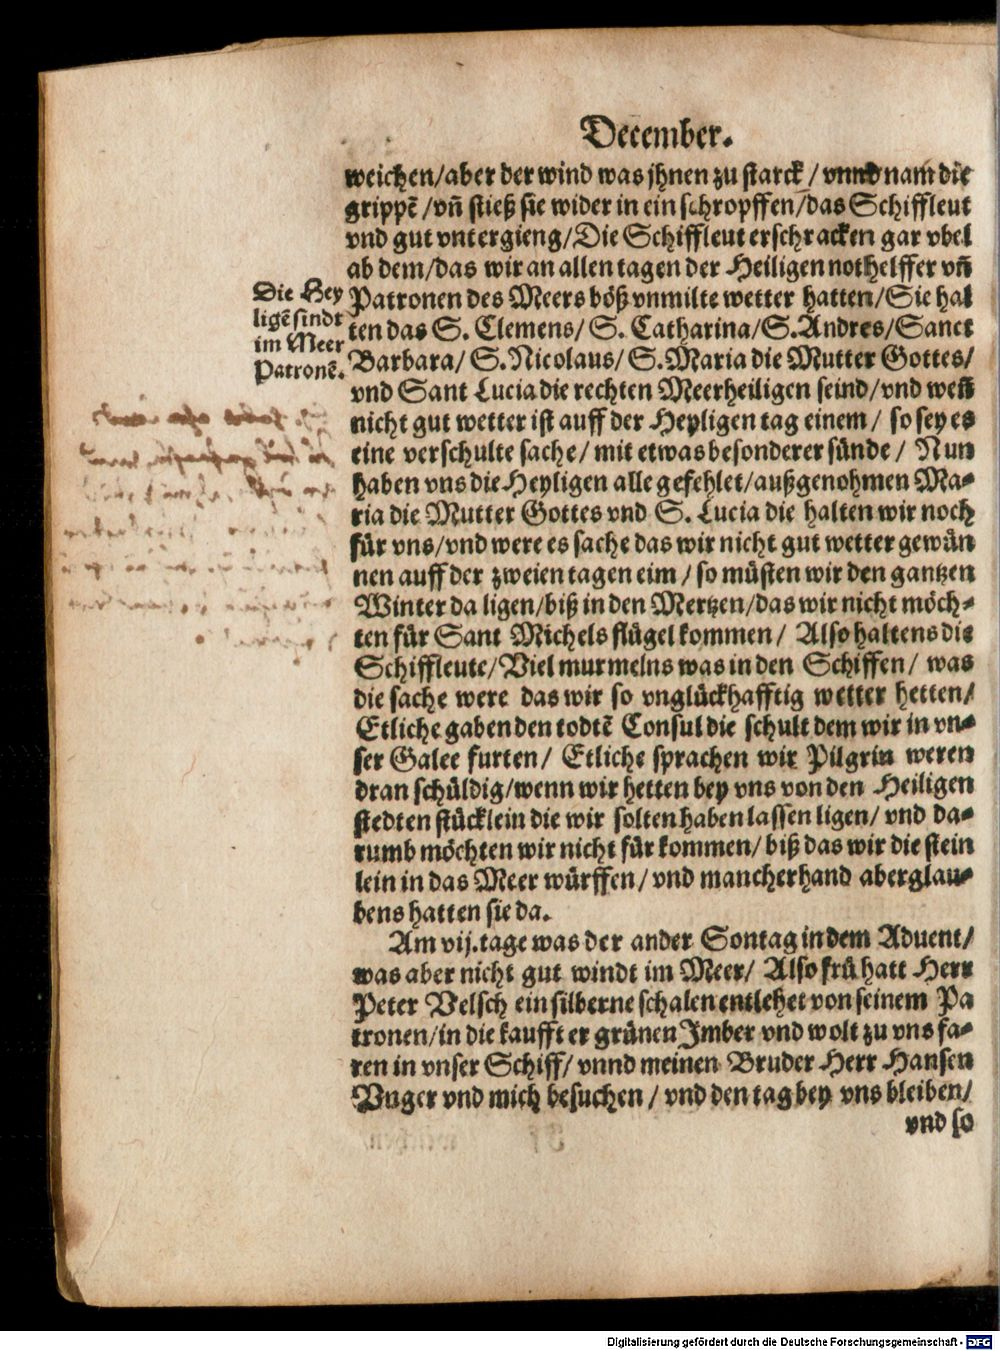 December.
weichen/aber der wind was jhnen zu starck/ vnnd nam die
grippẽ/vñ stieß sie wider in ein schropffen/das Schiffleut
vnd gut vntergieng/Die Schiffleut erschracken gar vbel
ab dem/das wir an allen tagen der Heiligen nothelffer vñ
Patronen des Meers böß vnmilte wetter hatten/Sie hal
ten das S. Clemens/ S. Catharina/S.Andres/Sanct
Barbara/ S.Nicolaus/ S.Maria die Mutter Gottes/
vnd Sant Lucia die rechten Meerheiligen seind/vnd weñ
nicht gut wetter ist auff der Heyligen tag einem/ so sey es
eine verschulte sache/ mit etwas besonderer sünde/ Nun
haben vns die Heyligen alle gefehlet/außgenohmen Ma-
ria die Mutter Gottes vnd S. Lucia die halten wir noch
für vns/vnd were es sache das wir nicht gut wetter gewün
nen auff der zweien tagen eim/ so müsten wir den gantzen
Winter da ligen/biß in den Mertzen/das wir nicht möch-
ten für Sant Michels flügel kommen/ Also haltens die
Schiffleute/Viel murmelns was in den Schiffen/ was
die sache were das wir so vnglückhafftig wetter hetten/
Etliche gaben den todtẽ Consul die schult dem wir in vn-
ser Galee furten/ Etliche sprachen wir Pilgrin weren
dran schüldig/wenn wir hetten bey vns von den Heiligen
stedten stücklein die wir solten haben lassen ligen/ vnd da-
rumb möchten wir nicht für kommen/ biß das wir die stein
lein in das Meer würffen/ vnd mancherhand aberglau-
bens hatten sie da.
Am vij.tage was der ander Sontag in dem Aduent/
was aber nicht gut windt im Meer/ Also frü hatt Herr
Peter Velsch ein silberne schalen entlehet von seinem Pa
tronen/in die kaufft er grünen Jmber vnd wolt zu vns fa-
ren in vnser Schiff/ vnnd meinen Bruder Herr Hansen
Vnger vnd mich besuchen/ vnd den tag bey vns bleiben/
vnd so
Die Hey
ligẽ sindt
im Meer
Patronẽ.
Digitalisierung gefördert durch die Deutsche Forschungsgemeinschaft - DFG